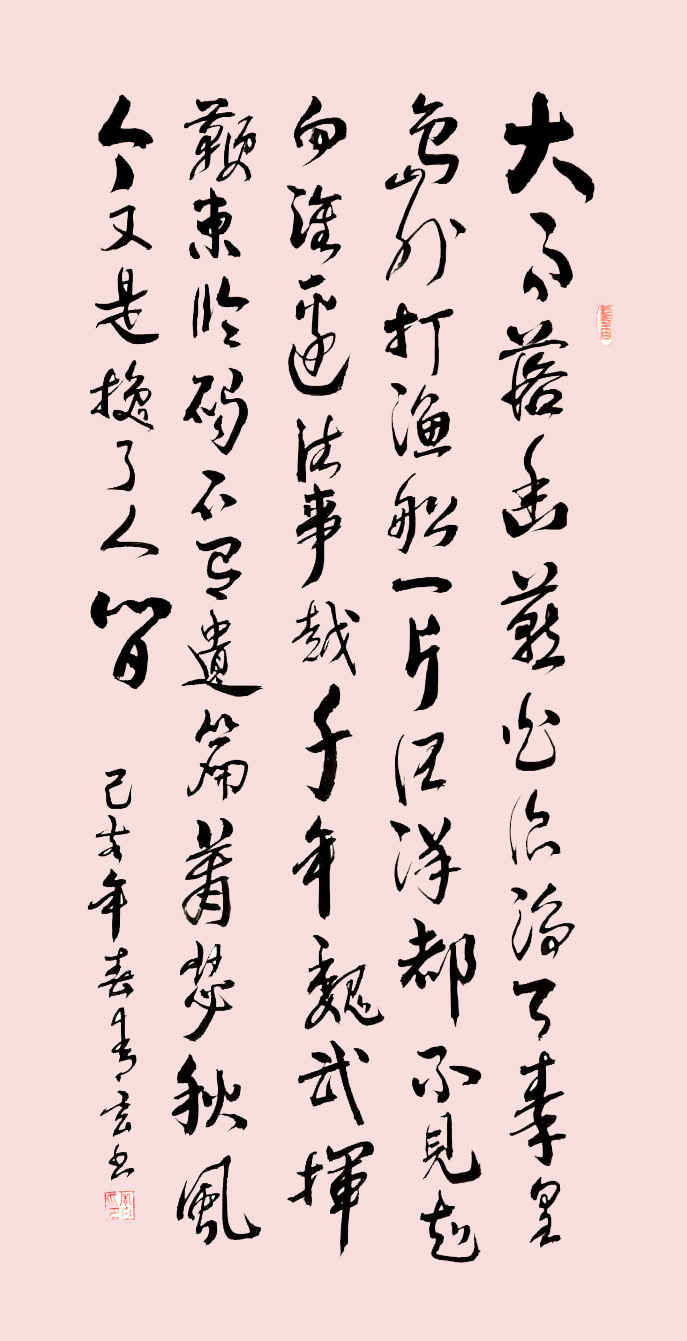 大雨落幽燕白浪滔天秦皇
島外打漁船一片汪洋都不見知
向誰邊往事越千年魏武揮
鞭東臨碣石有遺篇蕭瑟秋風
今又是換了人間
己亥年春书